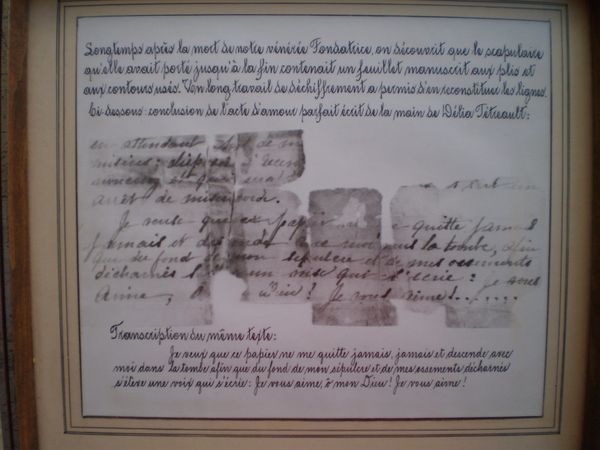 Longtemps après la mort de notre vénérée Fondatrice, on découvrit que le scapulaire
qu'elle avait porté jusqu'à la fin contenait un feuillet manuscrit aux plis et
aux contours usés. Un long travail de déchiffrement a permis d'en reconstituer les lignes.
Ci-dessous: conclusion de l'acte d'amour parfait écrit de la main de Délia Tétreault:
en attendant de
misères;
et qui sera
arrêt de miséricorde.
Je veux que ce papier ne quitte jamais
jamais et descende la tombe, afin
que du fond de mon sépulcre et de mes ossements
décharnés s' une voix qui s'écrie: je vous
aime, ô Dieu! Je vous aime!......
Transcription du même texte:
Je veux que ce papier ne me quitte jamais, jamais et descende avec
moi dans la tombe afin que du fond de mon sépulcre et de mes ossements décharnés
s'élève une voix qui s'écrie: Je vous aime, ô mon Dieu! Je vous aime!